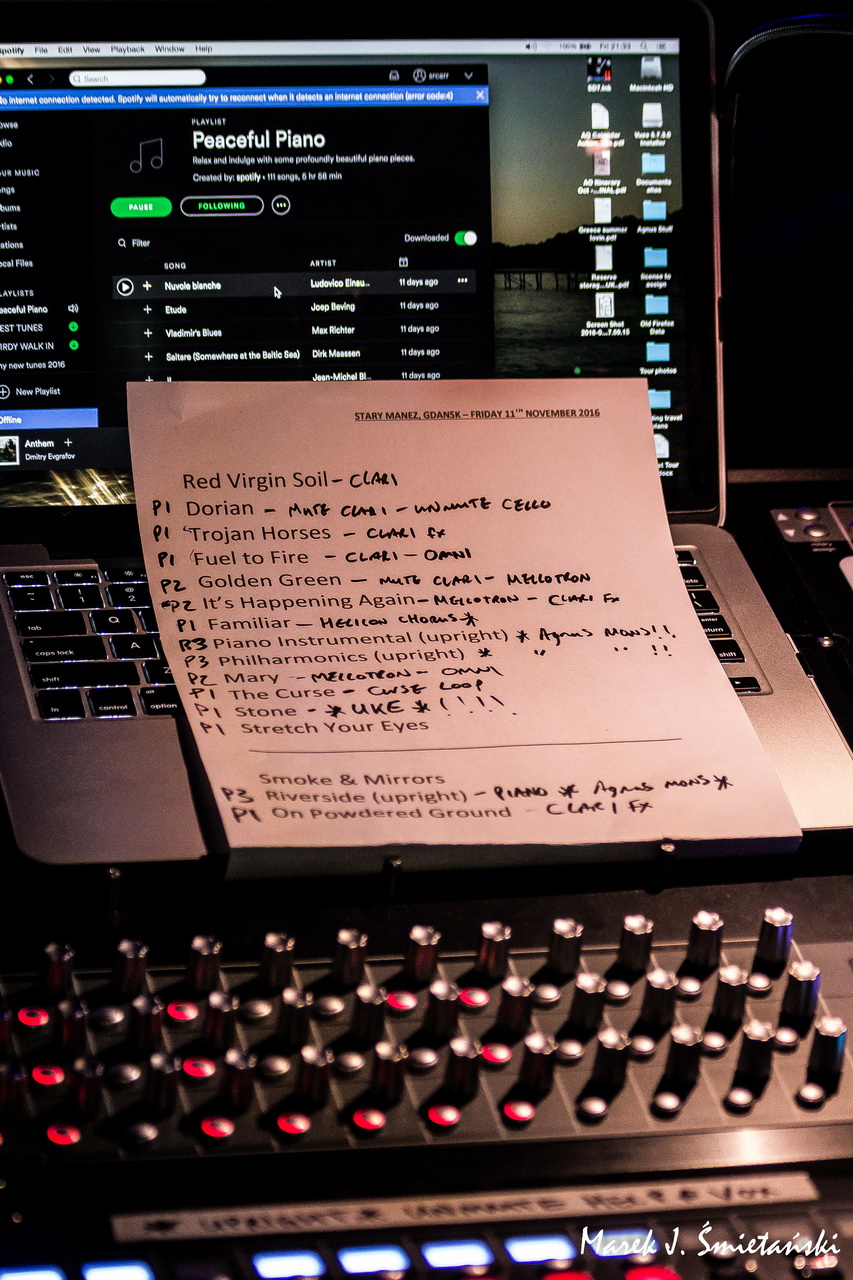 Spotify File Edit View Playback Window Help 100% Fri 21:33
Search
srcarr
No internet connection detected. Spotify will automatically try to reconnect when it detects an internet connection (error code:4)
PLAYLIST
Peaceful Piano
Relax and indulge with some profoundly beautiful piano pieces.
Created by: spotify • 111 songs, 6 hr 58 min
PAUSE FOLLOWING
Filter Downloaded
SONG ARTIST
Nuvole bianche Ludovico Einau... 11 days ago
Etude Joep Beving 11 days ago
Vladimir's Blues Max Richter 11 days ago
Saltare (Somewhere at the Baltic Sea) Dirk Maassen 11 days ago
Jean-Michel Bl... 11 days ago
OUR MUSIC
ongs
bums
tists
ations
ocal Files
LAYLISTS
eaceful Piano
EST TUNES
IRDY WALK IN
ny new tunes 2016
New Playlist
Offline
Anthem +
Dmitry Evgrafov
Macintosh HD
Installer
Documents
alias
Agnus Stuff
Greece summer
license to
assign
Old Firefox
Data
Screen Shot
Tour photos
STARY MANEZ, GDANSK – FRIDAY 11TH NOVEMBER 2016
Red Virgin Soil – CLARI
P1 Dorian – MUTE CLARI – UNMUTE CELLO
P1 Trojan Horses – CLARI FX
P1 Fuel to Fire – CLARI – OMNI
P2 Golden Green – MUTE CLARI – MELLOTRON
P2 It's Happening Again – MELLOTRON – CLARI FX
P1 Familiar – HELICON CHORUS *
P3 Piano Instrumental (upright) * Agnus MONS!!
P3 Philharmonics (upright) * " " !!
P2 Mary – MELLOTRON – OMNI
P1 The Curse – CURSE LOOP
P1 Stone – * UKE * !!!!
P1 Stretch Your Eyes
Smoke & Mirrors
P3 Riverside (upright) – PIANO * Agnus MONS *
P1 On Powdered Ground – CLARI FX
esc
tab Q
caps lock A
shift
fn control alt option
delete
enter
return
shift
Marek J. Śmietański